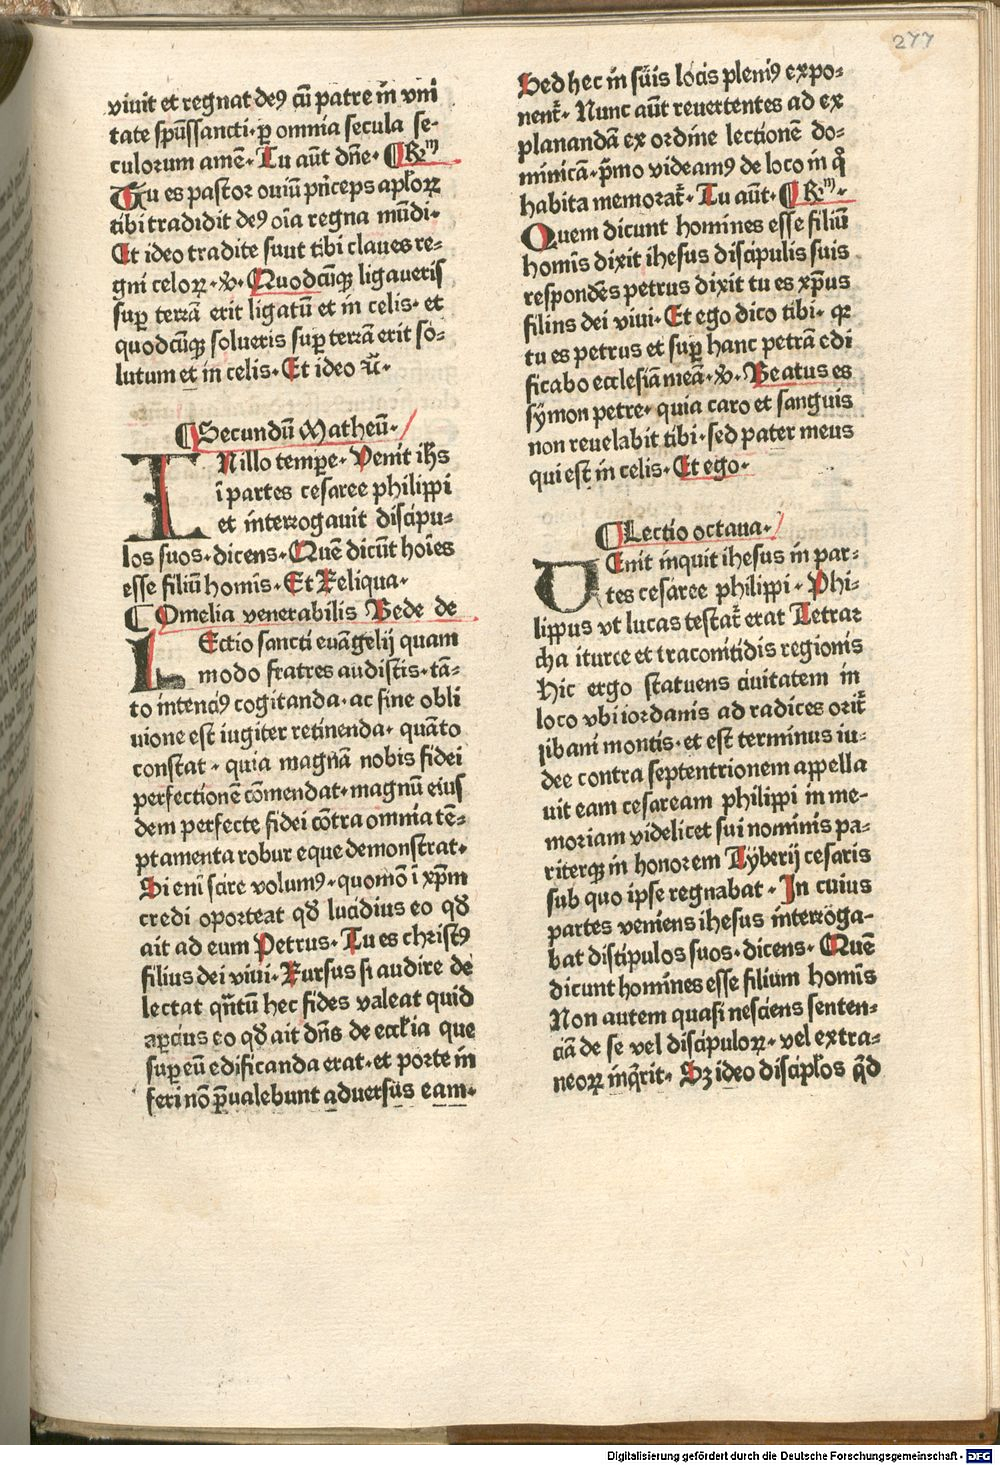 277
viuit et regnat deꝰ cū patre in vni
tate spūssancti· ꝑ omnia secula se-
culorum amē· Tu aūt dn̄e· ¶ Rm
Tu es pastor ouiū pn̄ceps apl̄oꝝ
tibi tradidit deꝰ oīa regna mūdi·
Et ideo tradite sunt tibi claues re-
gni celoꝝ· ꝟ· Quodcūqꝫ ligaueris
suꝑ terrā erit ligatū et in celis· et
quodcūqꝫ solueris suꝑ terrā erit so-
lutum et in celis· Et ideo ⁊c̄·
¶ Secundū Matheū·
IN illo temꝑe· Venit ih̄s
ī partes cesaree philippi
et interrogauit discipu-
los suos· dicens· Quē dicūt hoīes
esse filiū homīs· Et Reliqua·
¶ Omelia venerabilis Bede de
LEctio sancti euāgelij quam
modo fratres audistis· tā-
to intenciꝰ cogitanda· ac sine obli
uione est iugiter retinenda· quāto
constat· quia magnā nobis fidei
perfectionē cōmendat· magnū eius
dem perfecte fidei cōtra omnia tē-
ptamenta robur eque demonstrat·
Si enī scire volumꝰ· quomō ī xp̄m
credi oporteat qd̄ lucidius eo qd̄
ait ad eum Petrus· Tu es christꝰ
filius dei viui· Rursus si audire de
lectat qn̄tū hec fides valeat quid
apcius eo qd̄ ait dn̄s de ecclīa que
suꝑ eū edificanda erat· et porte in
feri nō p̄ualebunt aduersus eam·
Sed hec in sūis locis pleniꝰ expo-
nent᷑· Nunc aūt reuertentes ad ex
planandā ex ordine lectionē do-
minicā· pͥmo videamꝰ de loco in qͦ
habita memorat᷑· Tu aūt· ¶ Rm·
Quem dicunt homines esse filiū
homīs dixit ihesus discipulis suis
respondēs petrus dixit tu es xp̄us
filius dei viui· Et ego dico tibi· qꝛ
tu es petrus et suꝑ hanc petrā edi
ficabo ecclesiā meā· ꝟ· Beatus es
sȳmon petre· quia caro et sanguis
non reuelabit tibi· sed pater meus
qui est in celis· Et ego·
¶ Lectio octaua·
VEnit inquit ihesus in par-
tes cesaree philippi· Phi-
lippus vt lucas testat᷑ erat Tetrar
cha iturce et traconitidis regionis
Hic ergo statuens ciuitatem in
loco vbi iordanis ad radices orit᷑
libani montis· et est terminus iu-
dee contra septentrionem appella
uit eam cesaream philippi in me-
moriam videlicet sui nominis pa-
riterqꝫ in honorem Tyberij cesaris
sub quo ipse regnabat· In cuius
partes veniens ihesus interroga-
bat discipulos suos· dicens· Quē
dicunt homines esse filium homīs
Non autem quasi nesciens senten-
ciā de se vel discipuloꝝ· vel extra-
neoꝝ inqͥrit· Sꝫ ideo discipl̄os qͥd
Digitalisierung gefördert durch die Deutsche Forschungsgemeinschaft - DFG